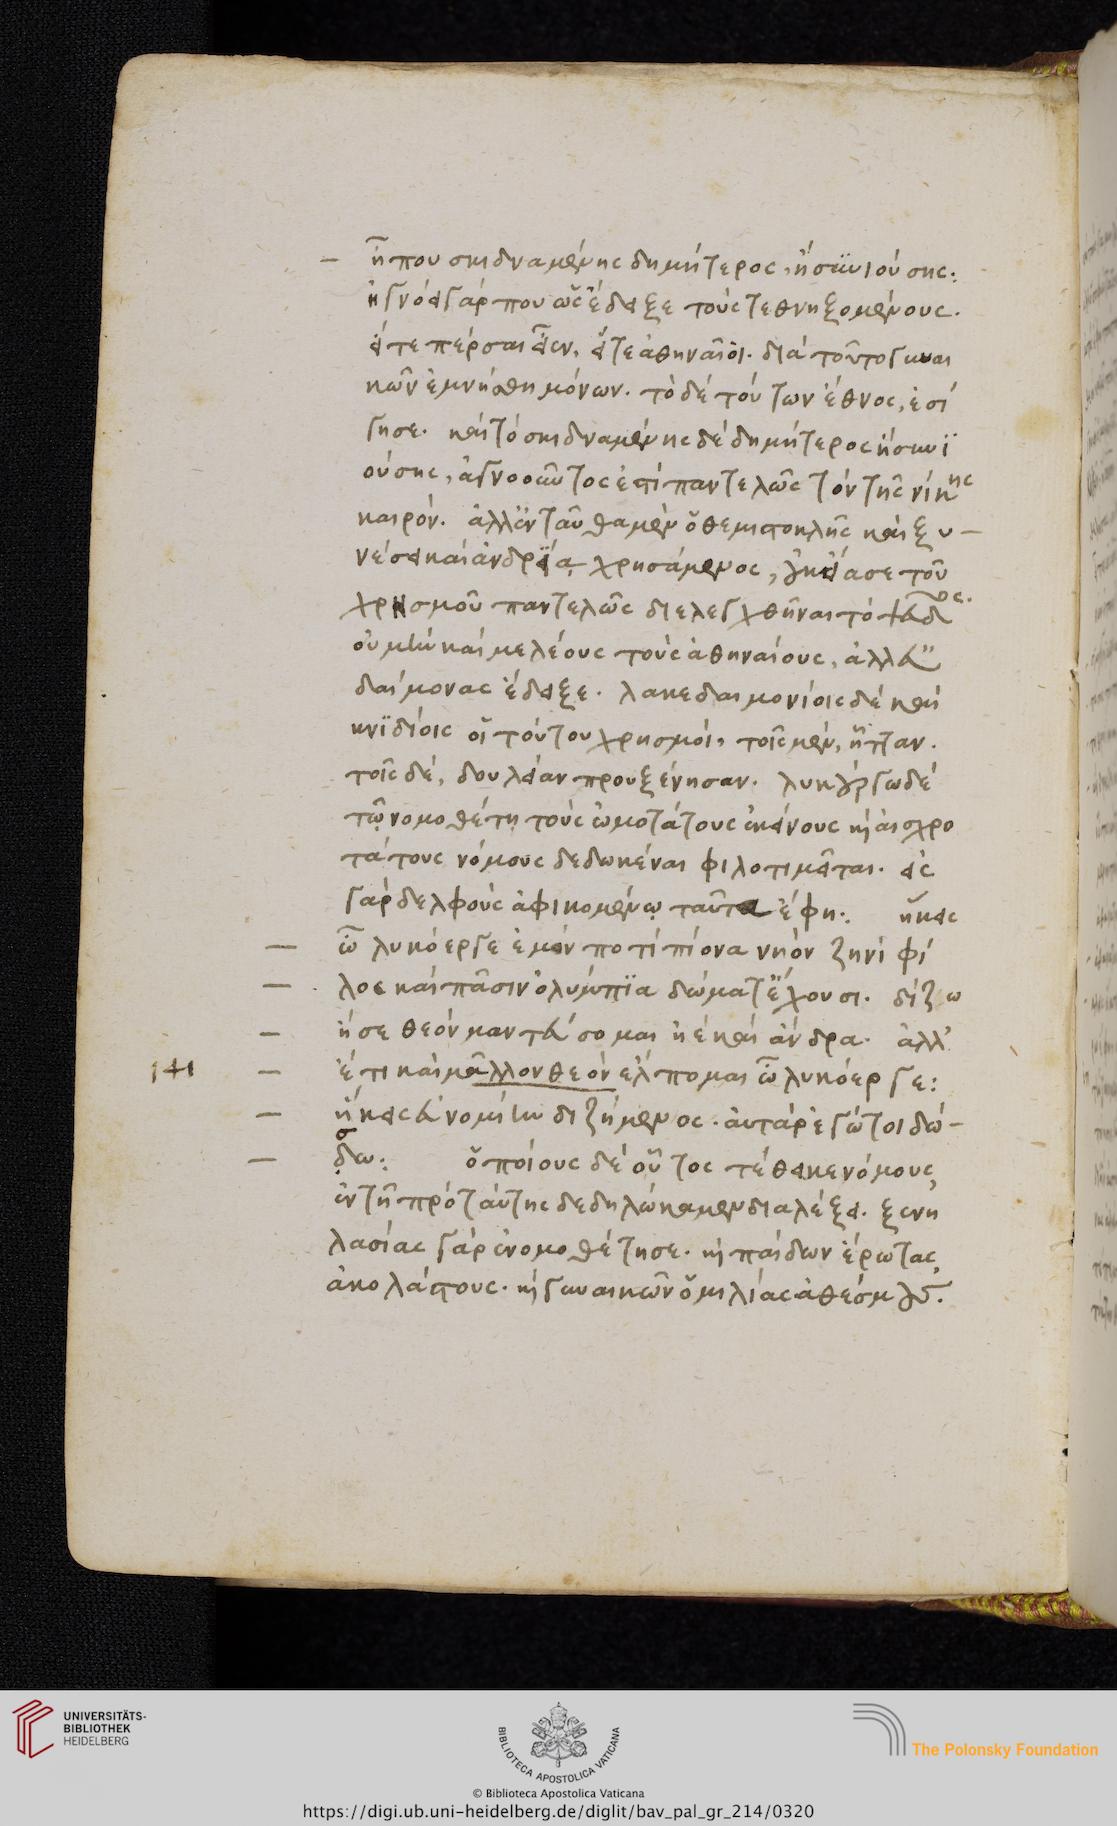 ἤ που σκιδναμένης δημήτερος, ἢ συνιούσης:
ἠγνόει γάρ που ὡς ἔδειξε τοὺς τεθνηξομένους.
εἴτε πέρσαι εἶεν, εἴτε ἀθηναῖοι. διὰ τοῦτο γυναι
κῶν ἐμνήσθη μόνων. τὸ δὲ τούτων ἔθνος, ἐσί
γησε. καὶ τὸ σκιδναμένης δὲ δημήτερος ἢ συνϊ
ούσης, ἀγνοοῦντος ἐστὶ παντελῶς τὸν τῆς νίκης
καιρόν. ἀλλ' ἐνταῦθα μὲν ὁ θεμιστοκλῆς καὶ ξυ-
νέσει καὶ ἀνδρείᾳ χρησάμενος, εἴασε τοῦ
χρησμοῦ παντελῶς διελεγχθῆναι τὸ ψεῦδος.
οὐ μὴν καὶ μελέους τοὺς ἀθηναίους, ἀλλ' εὐ
δαίμονας ἔδειξε. λακεδαιμονίοις δὲ καὶ
κνϊδίοις οἱ τούτου χρησμοὶ, τοῖς μὲν, ἧτταν.
τοῖς δὲ, δουλείαν προυξένησαν. λυκούργω δὲ
τῷ νομοθέτῃ τοὺς ὠμοτάτους ἐκείνους καὶ αἰσχρο
τάτους νόμους δεδωκέναι φιλοτιμεῖται. εἰς
γὰρ δελφοὺς ἀφικομένῳ ταῦτα ἔφη: ἥκεις
ὦ λυκόεργε ἐμὸν ποτὶ πίονα νηὸν ζηνὶ φί
λος καὶ πᾶσιν ὀλύμπϊα δώματ' ἔχουσι. δίζω
ἤ σε θεὸν μαντεύσομαι ἠὲ καὶ ἄνδρα. ἀλλ'
141 ἔτι καὶ μᾶλλον θεὸν ἔλπομαι ὦ λυκόεργε:
ἥκεις εὐνομίην διζήμενος. αὐτὰρ ἐγώ τοι δώ-
σω: ὁποίους δὲ οὗτος τέθεικε νόμους,
ἐν τῇ πρὸ ταύτης δεδηλώκαμεν διαλέξει. ξενη
λασίας γὰρ ἐνομοθέτησε. καὶ παίδων ἔρωτας
ἀκολάστους. καὶ γυναικῶν ὁμιλίας ἀθέσμους.
UNIVERSITÄTS-
BIBLIOTHEK
HEIDELBERG
BIBLIOTECA APOSTOLICA VATICANA
The Polonsky Foundation
© Biblioteca Apostolica Vaticana
https://digi.ub.uni-heidelberg.de/diglit/bav_pal_gr_214/0320